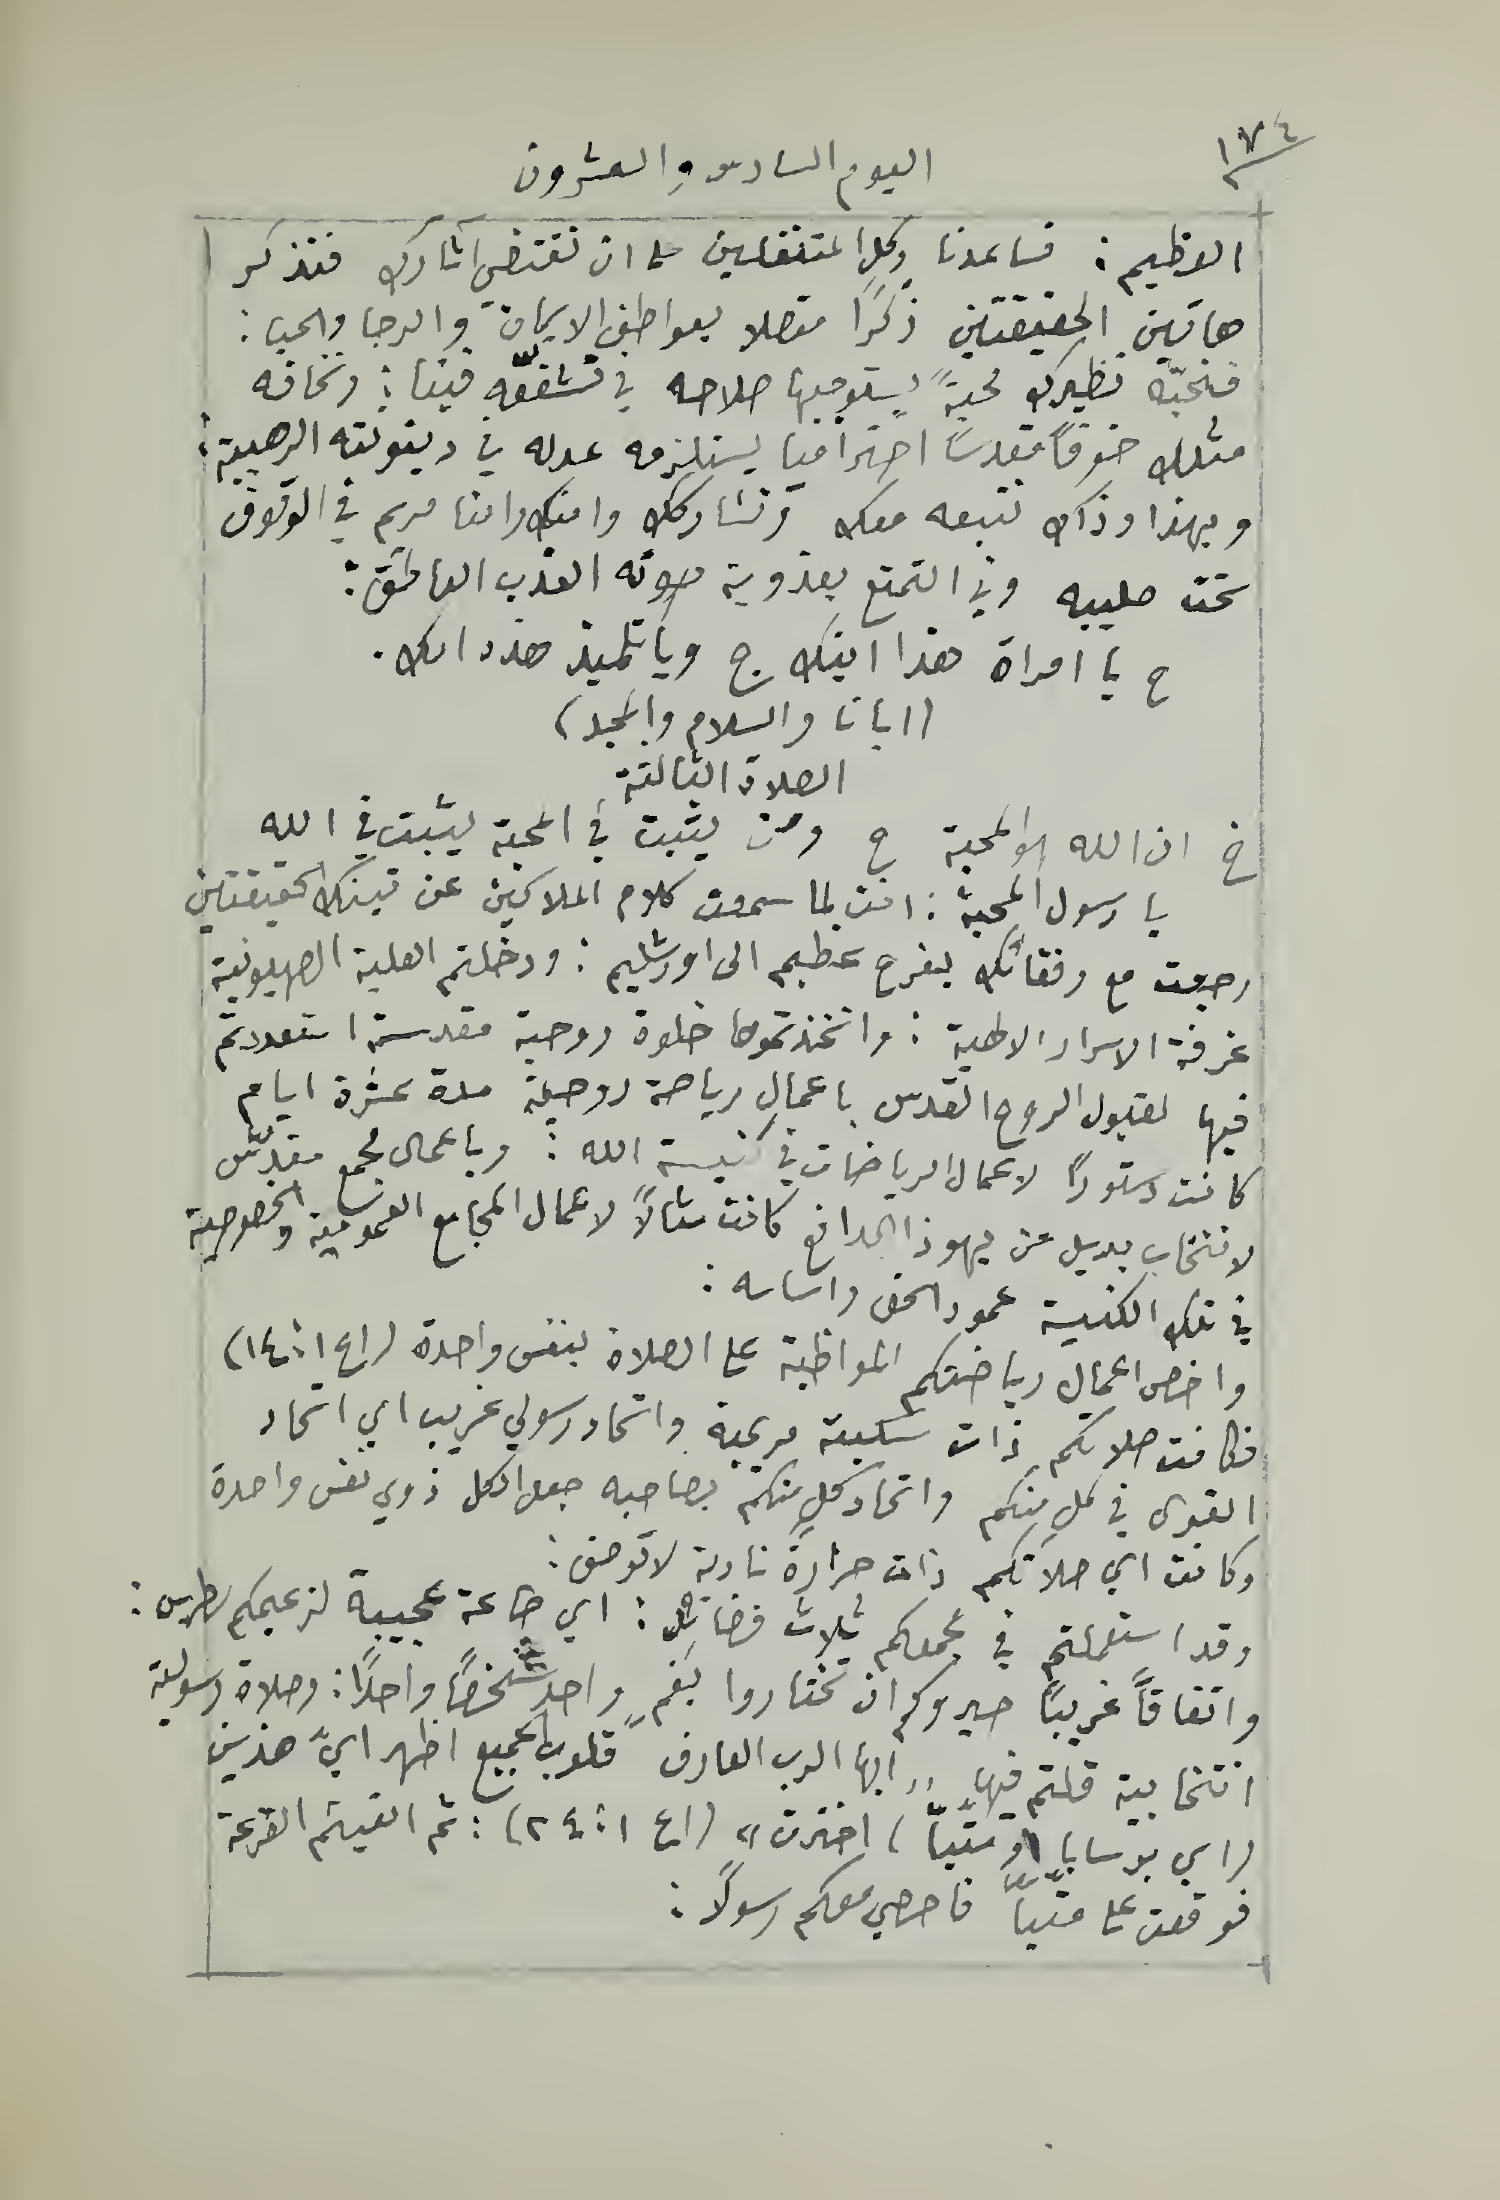 ١٧٤
اليوم السادس والعشرون
العظيم : فساعدنا وكل المتنفلين على ان نقتفي اثارك فنتذكر
هاتين الحقيقتين ذكرًا متصلا بعواطف الايمان والرجا والحب :
فنحبّه نظيرك محبةً يستوجبها صلاحه في تشفعّه فينا : ونخافه
مثلك خوفًا مقدسًا احترافيا يستلزمه عدله في دينونته الرهيبة :
وبهذا وذاك نتبعه معك ونشاركك وامك وامنا مريم في الوقوف
تحت صليبه وفي التمتع بعذوبة صوته العذب العاطق :
ح يا امراة هذا ابنك ج ويا تلميذ هذه امك .
(ابانا والسلام والمجد)
الصلاة الثالثة
خ ان الله هو المحبة ج ومن يثبت في المحبة يثبت في الله
يا رسول المحبة : انت لما سمعت كلام الملاكين عن تينك الحقيقتين
رجعت مع رفقائك بفرح عظيم الى اورشليم : ودخلتم العلية الصهيونية
غرفة الاسرار الالهية : واتخذتموها خلوة روحية مقدسة استعددتم
فيها لقبول الروح القدس باعمال رياضة روحية مدة عشرة ايام
كانت دستورًا لاعمال الرياضات في كنيسة الله : وباعمال مجمع مقدّس
لانتخاب بديل عن يهوذا الدافع كانت مثالاً لاعمال المجامع العمومية والخصوصية
في تلك الكنيسة عمود الحق واساسه :
واخص اعمال رياضتكم المواظبة على الصلاة بنفس واحدة (اع ١ : ١٤)
فكانت صلاتكم ذات سكينة مريمية واتحاد رسولي غريب اي اتحاد
القوى في كل منكم واتحاد كلٍ منكم بصاحبه جعل الكل ذوي نفس واحدة
وكانت اي صلاتكم ذات حرارة نارية لا توصف :
وقد استعملتم في مجمعكم ثلاث فضائل : اي طاعة عجيبة لزعيمكم بطرس :
واتفاقًا غريبًا صيروكم ان تختاروا بفمٍ واحد شخصًا واحدًا : وصلاة رسولية
انتخابية قلتم فيها „ ايها الرب العارف قلوب الجميع اظهر ايّ هذين
(اي برسابا او متيّا) اخترت " (اع ١ : ٢٤) : ثم القيتم القرعة
فوقعت على متيّا فاحصي معكم رسولاً :